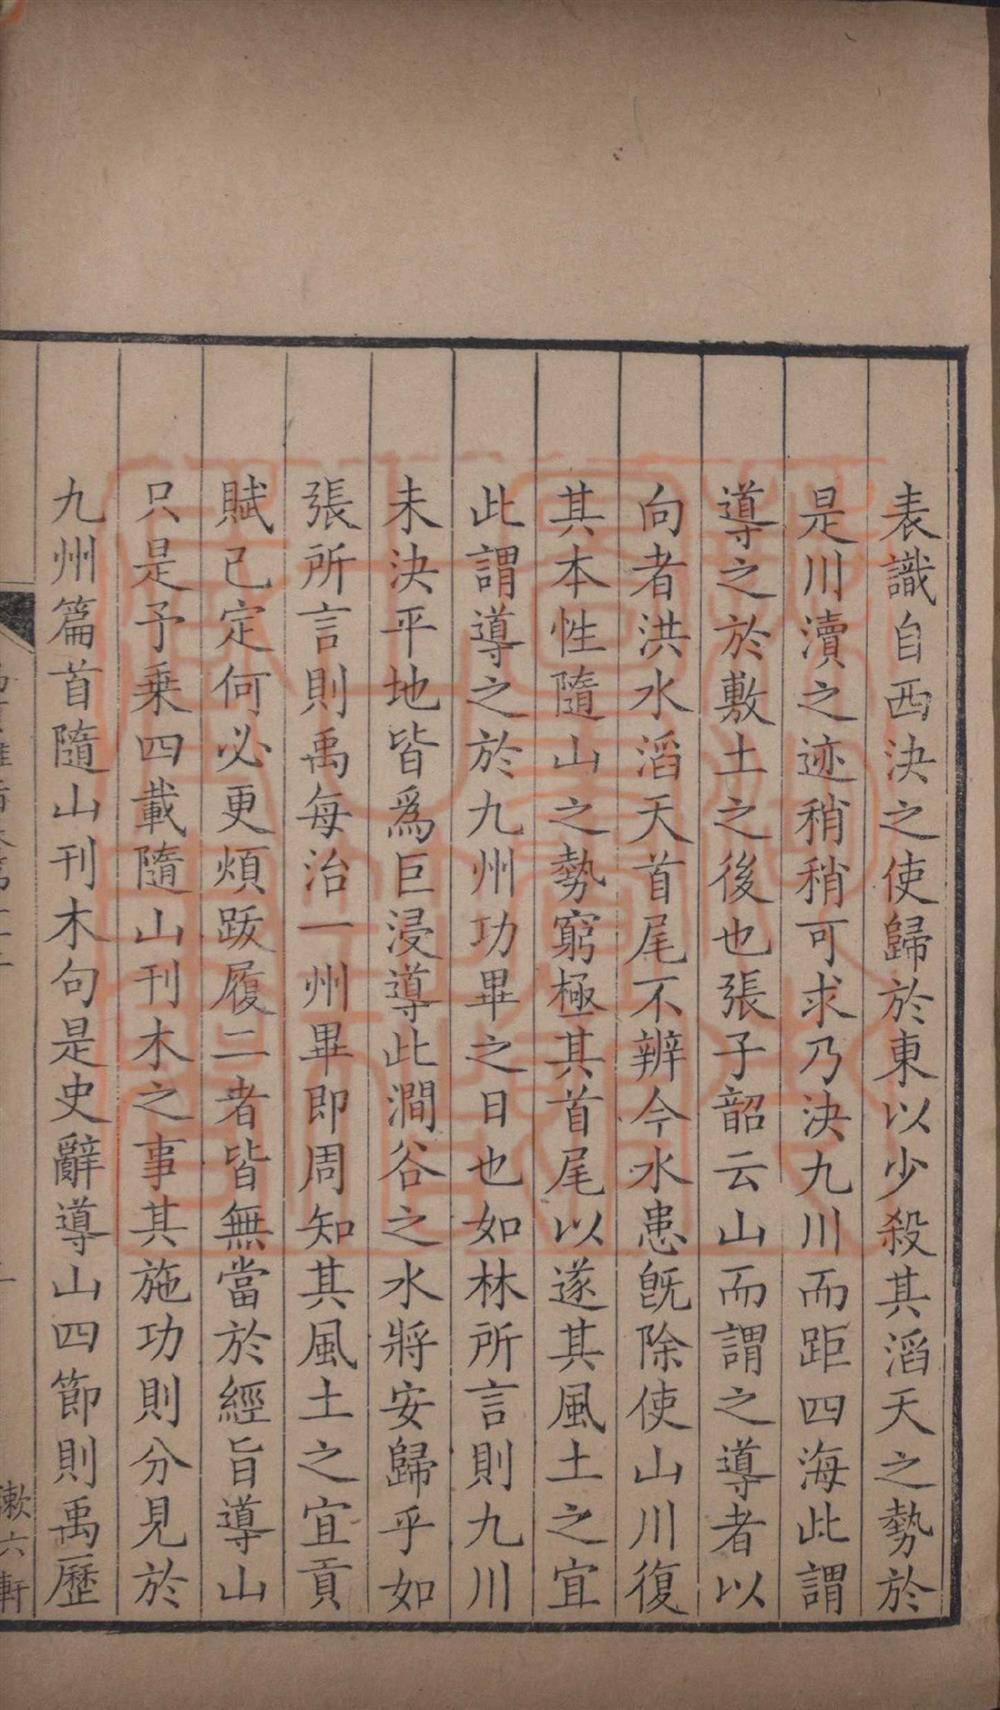 表識自西決之使歸於東以少殺其滔天之勢於
是川瀆之迹稍稍可求乃決九川而距四海此謂
導之於敷土之後也張子韶云山而謂之導者以
向者洪水滔天首尾不辨今水患旣除使山川復
其本性隨山之勢窮極其首尾以遂其風土之宜
此謂導之於九州功畢之日也如林所言則九川
未決平地皆爲巨浸導此澗谷之水將安歸乎如
張所言則禹每治一州畢即周知其風土之宜貢
賦已定何必更煩跋履二者皆無當於經旨導山
只是予乗四載隨山刊木之事其施功則分見於
九州篇首隨山刊木句是史辭導山四節則禹歷
漱六軒